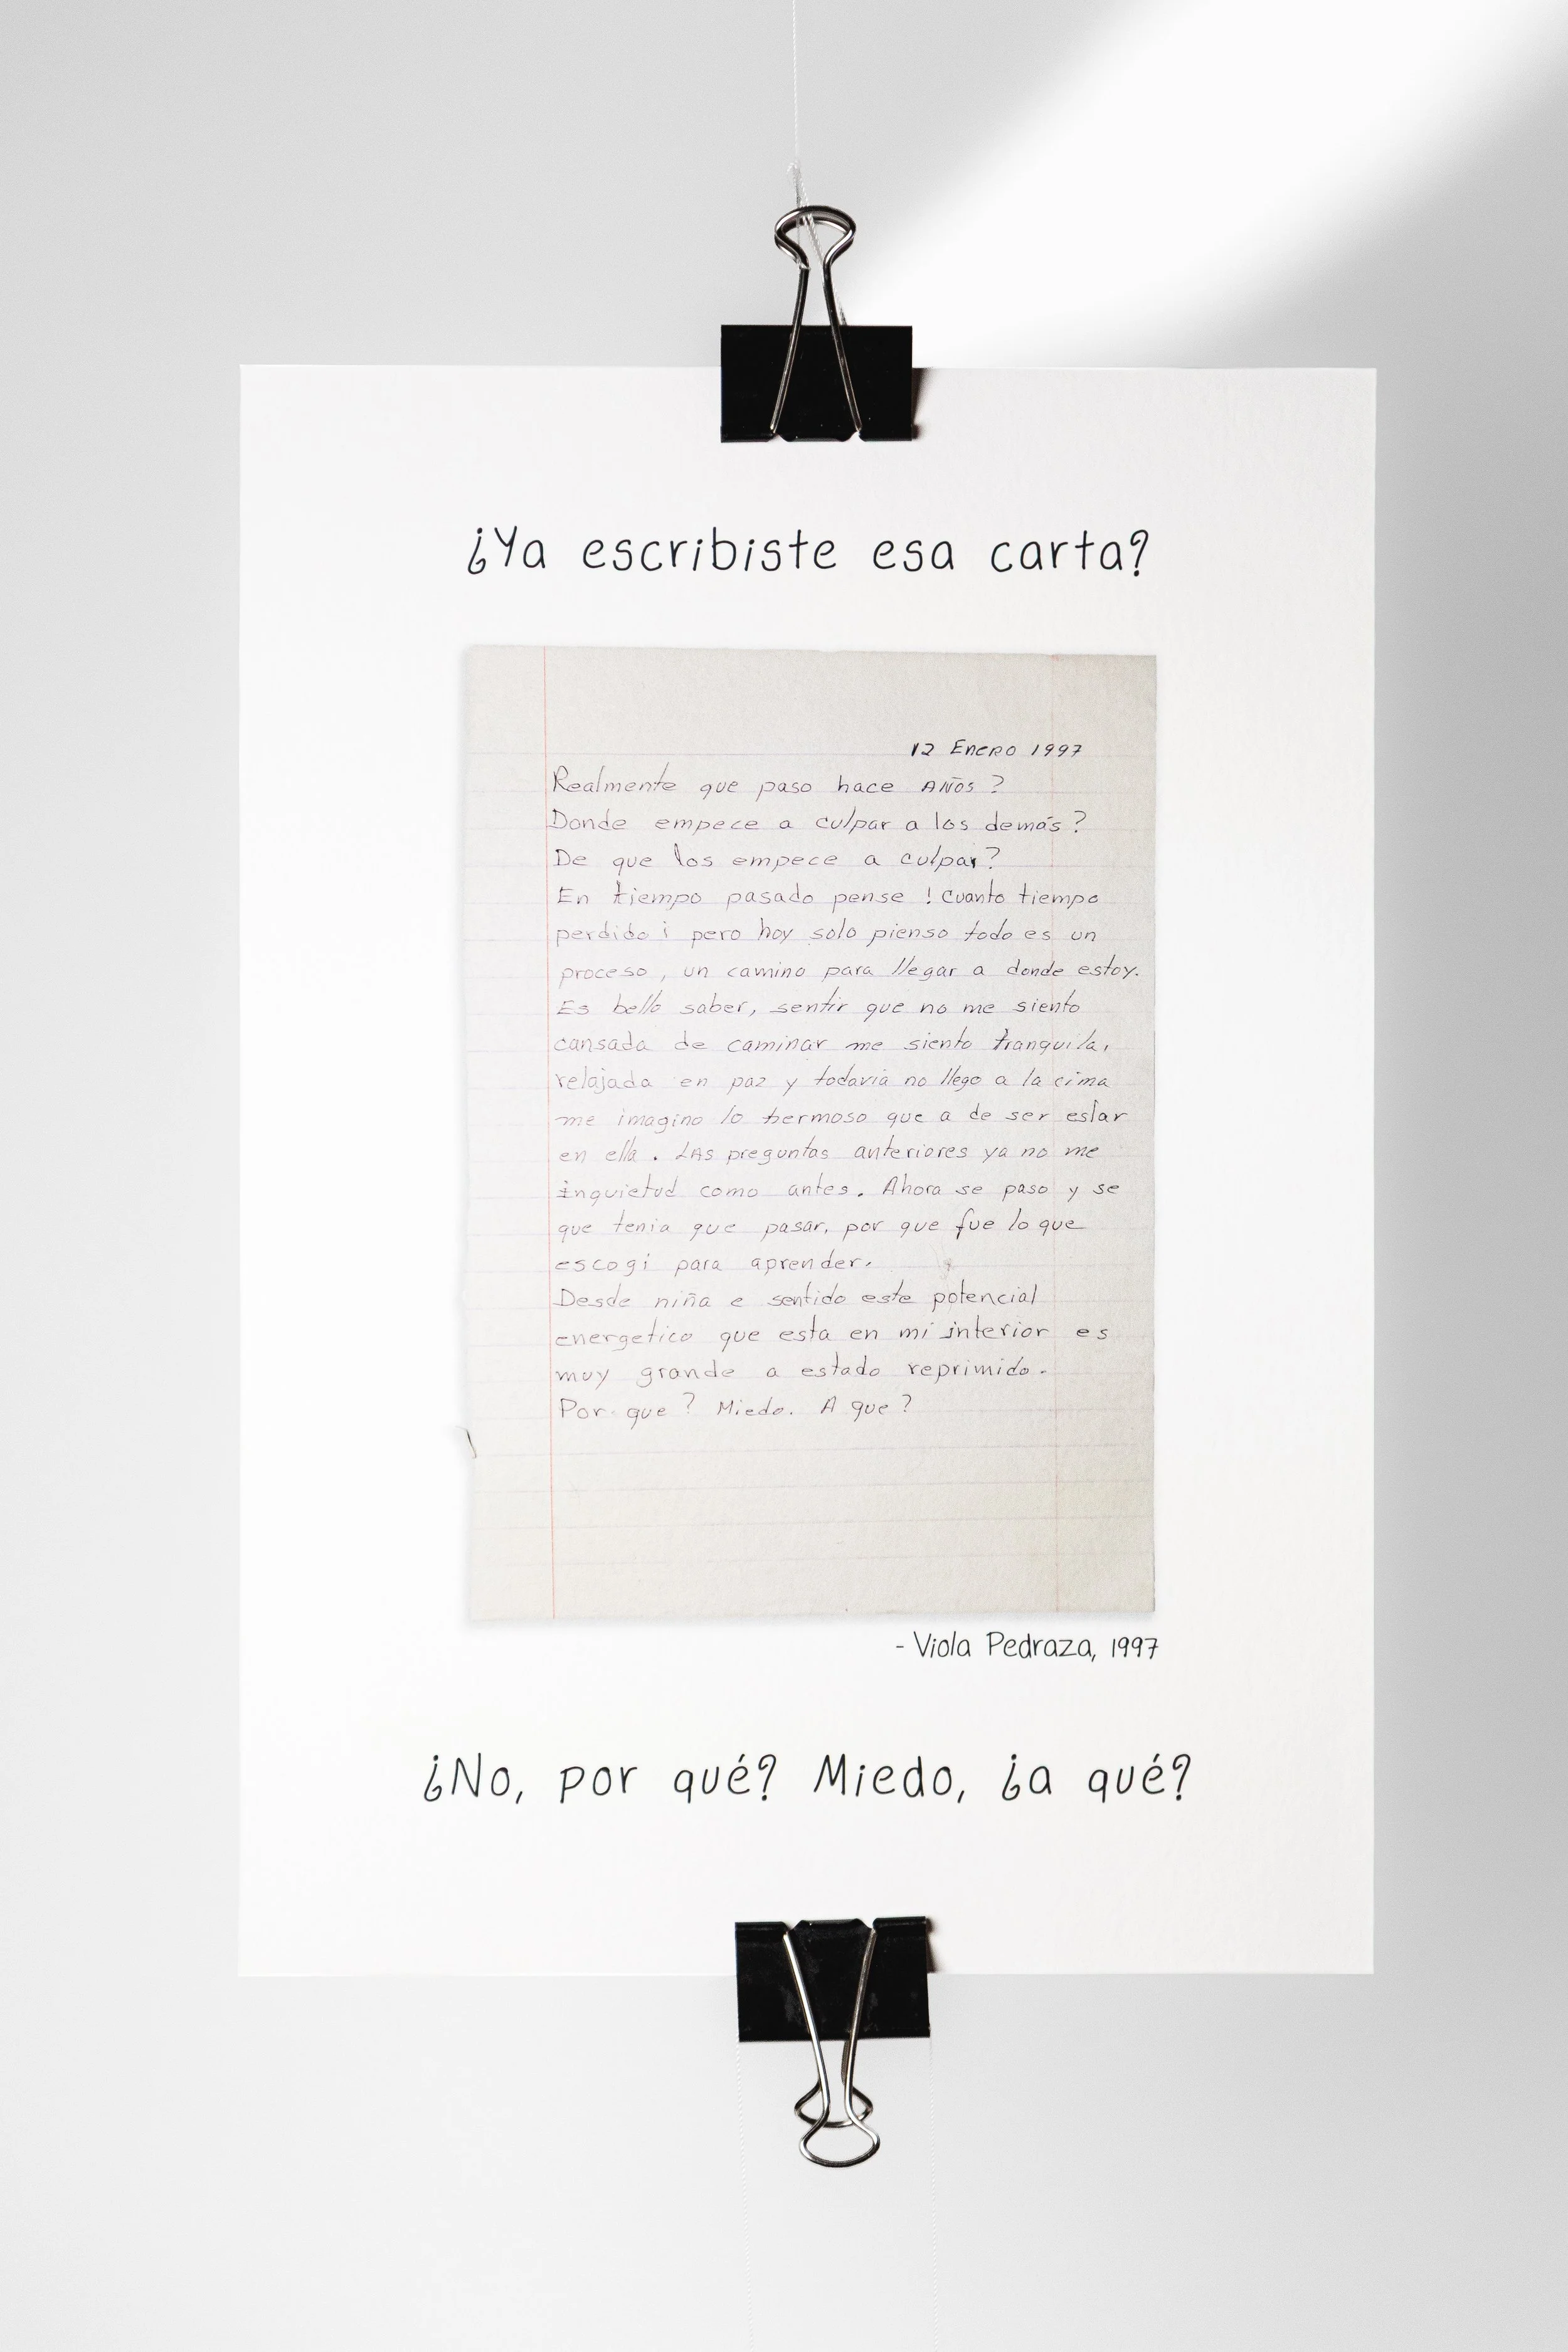 ¿Ya escribiste esa carta?
12 Enero 1997
Realmente que paso hace AÑOS ?
Donde empece a culpar a los demás ?
De que los empece a culpar ?
En tiempo pasado pense ! Cuanto tiempo
perdido ¡ pero hoy solo pienso todo es un
proceso , un camino para llegar a donde estoy.
Es bello saber, sentir que no me siento
cansada de caminar me siento tranquila,
relajada en paz y todavia no llego a la cima
me imagino lo hermoso que a de ser estar
en ella . LAS preguntas anteriores ya no me
inquietud como antes. Ahora se paso y se
que tenia que pasar, por que fue lo que
escogi para aprender.
Desde niña e sentido este potencial
energetico que esta en mi interior es
muy grande a estado reprimido.
Por que ? Miedo. A que ?
- Viola Pedraza, 1997
¿No, por qué? Miedo, ¿a qué?